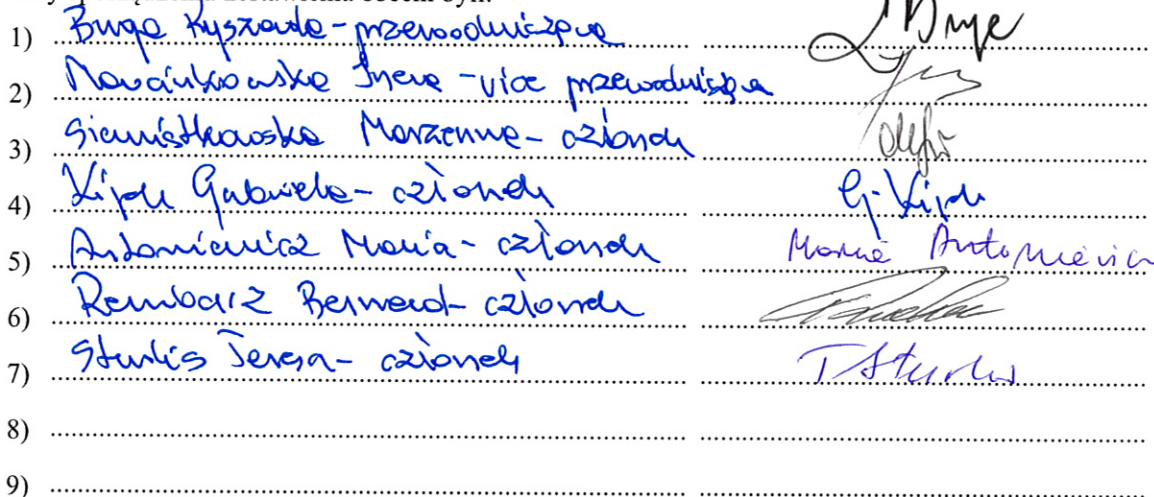 1) Buga Ryszarda - przewodnicząca
2) Marcinkowska Irena - vice przewodnicząca
3) Siemiątkowska Marzenna - członek
4) Kipek Gabriela - członek G. Kipek
5) Antoniewicz Maria - członek Maria Antoniewicz
6) Rembarz Bernard - członek
7) Sturlis Teresa - członek T Sturlis
8)
9)